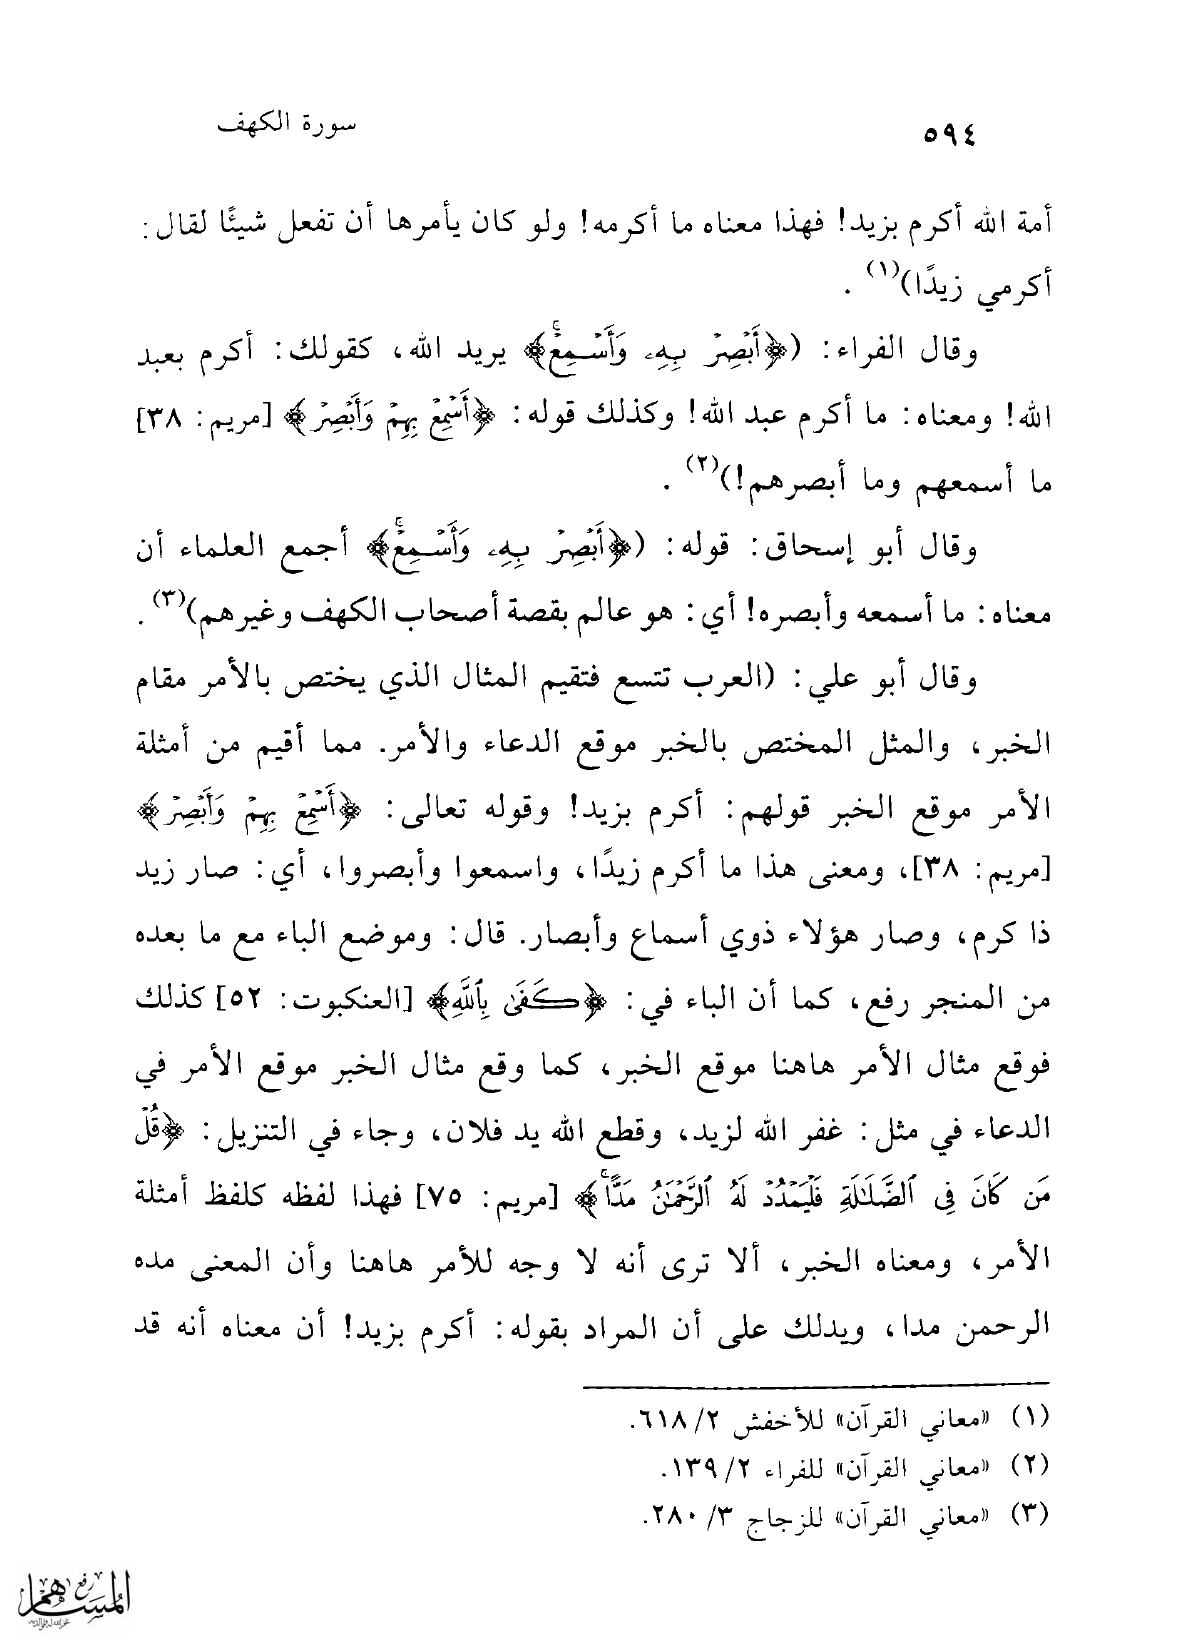 ٥٩٤ سورة الكهف
أمة الله أكرم بزيد! فهذا معناه ما أكرمه! ولو كان يأمرها أن تفعل شيئًا لقال:
أكرمي زيدًا)(١) .
وقال الفراء: (﴿أَبْصِرْ بِهِۦ وَأَسْمِعْۚ﴾ يريد الله، كقولك: أكرم بعبد
الله! ومعناه: ما أكرم عبد الله! وكذلك قوله: ﴿أَسْمِعْ بِهِمْ وَأَبْصِرْ﴾ [مريم: ٣٨]
ما أسمعهم وما أبصرهم!)(٢) .
وقال أبو إسحاق: قوله: (﴿أَبْصِرْ بِهِۦ وَأَسْمِعْۚ﴾ أجمع العلماء أن
معناه: ما أسمعه وأبصره! أي: هو عالم بقصة أصحاب الكهف وغيرهم)(٣).
وقال أبو علي: (العرب تتسع فتقيم المثال الذي يختص بالأمر مقام
الخبر، والمثل المختص بالخبر موقع الدعاء والأمر. مما أقيم من أمثلة
الأمر موقع الخبر قولهم: أكرم بزيد! وقوله تعالى: ﴿أَسْمِعْ بِهِمْ وَأَبْصِرْ﴾
[مريم: ٣٨]، ومعنى هذا ما أكرم زيدًا، واسمعوا وأبصروا، أي: صار زيد
ذا كرم، وصار هؤلاء ذوي أسماع وأبصار. قال: وموضع الباء مع ما بعده
من المنجر رفع، كما أن الباء في: ﴿كَفَىٰ بِٱللَّهِ﴾ [العنكبوت: ٥٢] كذلك
فوقع مثال الأمر هاهنا موقع الخبر، كما وقع مثال الخبر موقع الأمر في
الدعاء في مثل: غفر الله لزيد، وقطع الله يد فلان، وجاء في التنزيل: ﴿قُلْ
مَن كَانَ فِى ٱلضَّلَٰلَةِ فَلْيَمْدُدْ لَهُ ٱلرَّحْمَٰنُ مَدًّاۚ﴾ [مريم: ٧٥] فهذا لفظه كلفظ أمثلة
الأمر، ومعناه الخبر، ألا ترى أنه لا وجه للأمر هاهنا وأن المعنى مده
الرحمن مدا، ويدلك على أن المراد بقوله: أكرم بزيد! أن معناه أنه قد
(١) «معاني القرآن» للأخفش ٢/ ٦١٨.
(٢) «معاني القرآن» للفراء ٢/ ١٣٩.
(٣) «معاني القرآن» للزجاج ٣/ ٢٨٠.